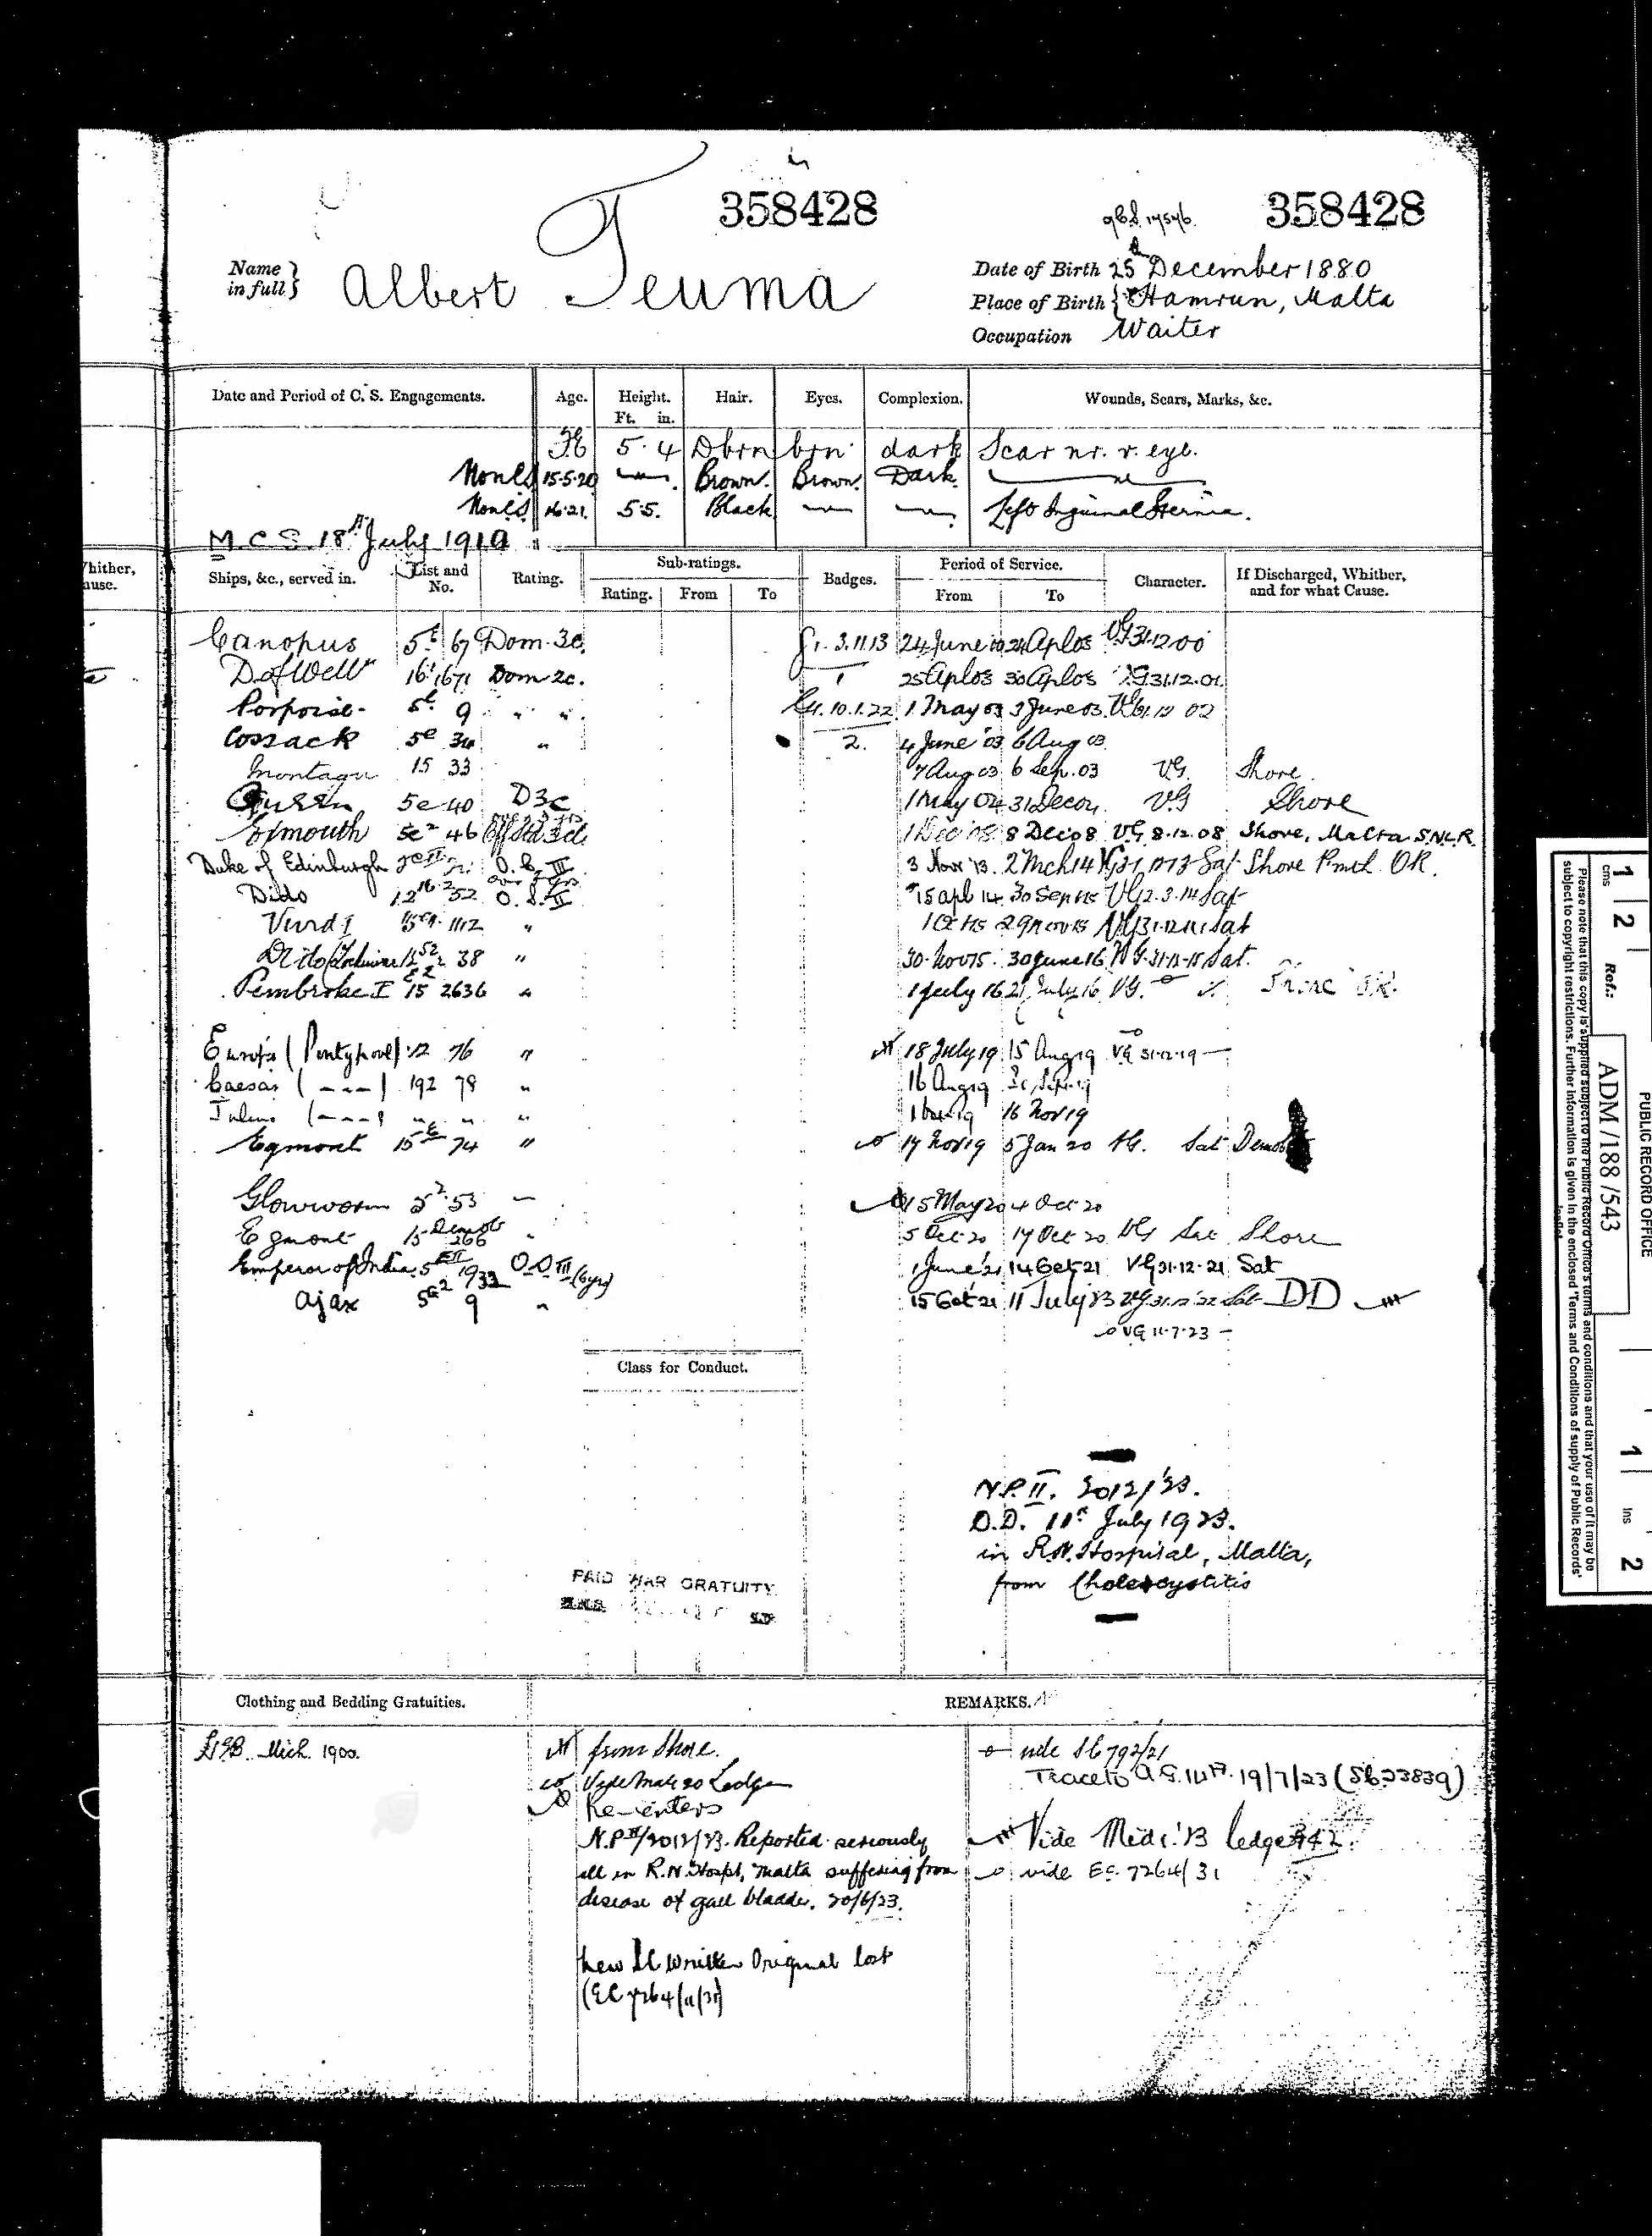 358428
358428
Name in full } Albert Teuma
Date of Birth 25th December 1880
Place of Birth { Hamrun, Malta
Occupation Waiter
Date and Period of C. S. Engagements. Age. Height. Ft. in. Hair. Eyes. Complexion. Wounds, Scars, Marks, &c.
5.4 Dbrn brn dark Scar nr. r. eye.
15.5.20 Brown. Brown. Dark.
5.5. Black Left Inguinal Hernia.
M.C.S. 18th July 1910
Ships, &c., served in. List and No. Rating. Sub-ratings. Rating. From To Badges. Period of Service. From To Character. If Discharged, Whither, and for what Cause.
Canopus 5c 67 Dom. 3c. G1. 3.11.13 24 June 24 Ap 03 VG 31.12.00
D of Well 16 1671 Dom 2c. 1 25 Ap 03 30 Ap 03 VG 31.12.01
Porpoise 5c 9 " " 10.1.22 1 May 03 3 June 03 VG 02
Cossack 5c 34 " 2. 4 June 03 6 Aug 03
Montagu 15 33 7 Aug 03 6 Sep. 03 VG. Shore
Queen 5c 40 D3c 1 May 04 31 Dec 04 VG Shore
Exmouth 5c2 46 8 Dec 08 VG 8.12.08 Shore, Malta S.N.L.R.
Duke of Edinburgh O.S. III 3 Nov 13 2 Mch 14 Sat Shore Pmth OR.
Dido 12 52 O.S. II 15 Apl 14 30 Sep 15 VG 2.3.14 Sat
Vivid I 1112 " 1 Oct 15 29 Nov 15 VG Sat
Dido 38 " 30 Nov 15 30 June 16 VG 31-12-15 Sat.
Pembroke I 15 2636 " 1 July 16 21 July 16 VG.
Europa (Pontypool) 12 76 " 18 July 19 15 Aug 19 VG 31-12-19
Caesar ( --- ) 192 78 " 16 Aug 19
( --- ) " " " 16 Nov 19
Egmont 15 74 " 17 Nov 19 5 Jan 20 VG. Sat Demob
Glowworm 5 2 53 15 May 20 4 Oct 20
Egmont 15 Demob 266 " 5 Oct 20 17 Oct 20 VG Sat Shore
Emperor of India. 1933 (6yrs) 1 June 21 14 Oct 21 VG 31-12-21 Sat
Ajax 5c2 9 " 15 Oct 21 11 July 23 VG 31.12.22 Sat DD
VG 11-7-23
Class for Conduct.
N.P. II. 2012/23.
D.D. 11th July 1923.
in R.N. Hospital, Malta,
from Cholecystitis
PAID WAR GRATUITY
Clothing and Bedding Gratuities. REMARKS.
Mich. 1900.
from Shore.
Ledger
Re-enters
N.P II/2012/23. Reported seriously
ill in R.N. Hospl, Malta suffering from
disease of gall bladder. 20/6/23.
New SC written Original lost
(EC 7264/31)
vide 792/21
Trace to A.G. 19/7/23 (Sb 23839)
Vide Medr. 23 ledger 442.
vide EC. 7264/31
hither,
ause.
PUBLIC RECORD OFFICE
1 2 cms Ref.: ADM/188/543 1 ins 2
Please note that this copy is supplied subject to the Public Record Office's terms and conditions and that your use of it may be
subject to copyright restrictions. Further information is given in the enclosed 'Terms and Conditions of supply of Public Records'
leaflet